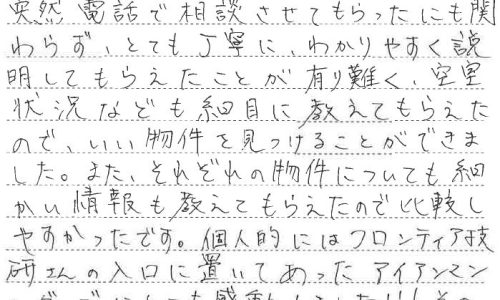 突然電話で相談させてもらったにも関
わらず、とても丁寧に、わかりやすく説
明してもらえたことが有り難く、空室
状況なども細目に教えてもらえた
ので、いい物件を見つけることができま
した。また、それぞれの物件についても細
かい情報も教えてもらえたので比較し
やすかったです。個人的にはフロンティア技
研さんの入口に置いてあったアイアンマン